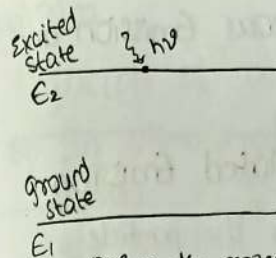 Excited
state
hν
E₂
ground
state
E₁